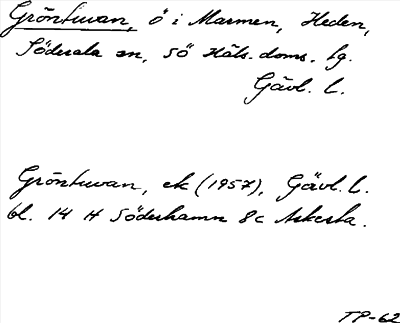 Gröntuvan, ö i Marmen, Heden,
Söderala sn, SÖ Häls. doms. tg.
Gävl. l.
Gröntuvan, ek (1957), Gävl. l.
bl. 14 H Söderhamn 8c Askesta.
TP-62